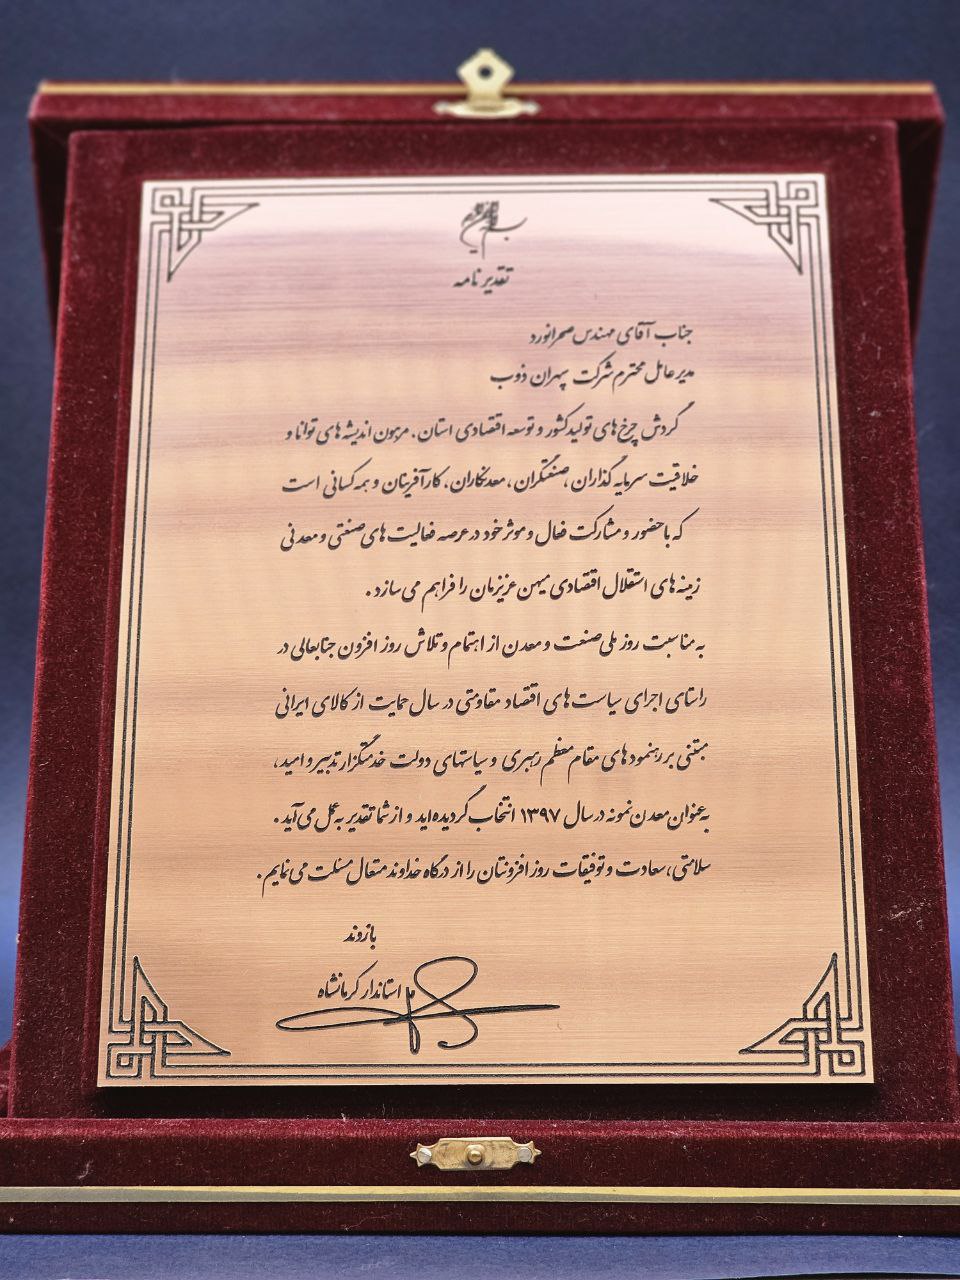 بسم الله الرحمن الرحیم
تقدیرنامه
جناب آقای مهندس صحرانورد
مدیرعامل محترم شرکت سپهران ذوب
گردش چرخ های تولید کشور و توسعه اقتصادی استان، مرهون اندیشه های توانا و
خلاقیت سرمایه گذاران، صنعتگران، معدنکاران، کارآفرینان و همه کسانی است
که با حضور و مشارکت فعال و موثر خود در عرصه فعالیت های صنعتی و معدنی
زمینه های استقلال اقتصادی میهن عزیزمان را فراهم می سازد.
به مناسبت روز ملی صنعت و معدن از اهتمام و تلاش روز افزون جنابعالی در
راستای اجرای سیاست های اقتصاد مقاومتی در سال حمایت از کالای ایرانی
مبتنی بر رهنمودهای مقام معظم رهبری و سیاستهای دولت خدمتگزار تدبیر و امید،
به عنوان معدن نمونه در سال ۱۳۹۷ انتخاب گردیده اید و از شما تقدیر به عمل می آید.
سلامتی، سعادت و توفیقات روز افزونتان را از درگاه خداوند متعال مسئلت می نمایم.
بازوند
استاندار کرمانشاه